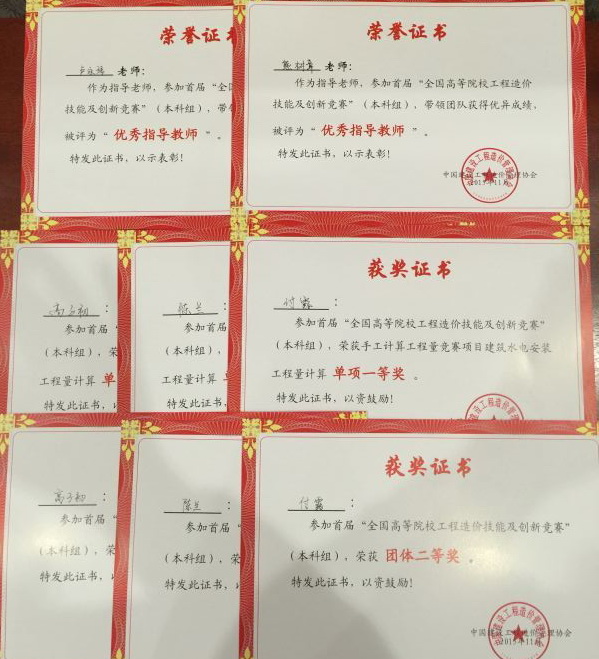 荣誉证
老师：
作为指导老师，参加首届“全
技能及创新竞赛”（本科组），带
被评为“优秀指导教师”。
特发此证书，以示表彰！
荣誉证书
老师：
作为指导老师，参加首届“全国高等院校工程造价
技能及创新竞赛”（本科组），带领团队获得优异成绩，
被评为“优秀指导教师”。
特发此证书，以示表彰！
中国建设工程造价管理协会
2015年11月
高子初：
参加首届“
（本科组），荣
工程量计算 单
特发此证书，
陈兰：
参加首届“
（本科组），荣
工程量计算
特发此证书，以
获奖证书
付露：
参加首届“全国高等院校工程造价技能及创新竞赛”
（本科组），荣获手工计算工程量竞赛项目建筑水电安装
工程量计算 单项一等奖。
特发此证书，以资鼓励！
高子初：
参加首届
（本科组），荣
特发此证书，
陈兰：
参加首届“
（本科组），荣
特发此证书，以
获奖证书
付露：
参加首届“全国高等院校工程造价技能及创新竞赛”
（本科组），荣获 团体二等奖。
特发此证书，以资鼓励！
中国建设工程造价管理协会
2015年11月